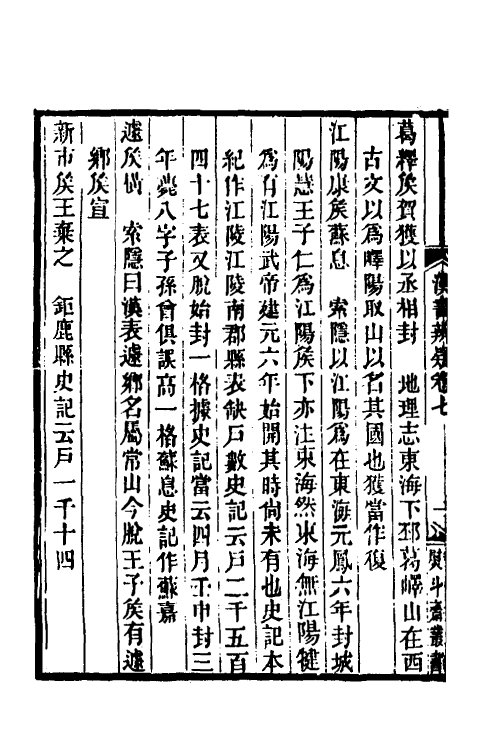 漢書辨疑卷七
二
煗斗齋叢書
葛繹矦賀獲以丞相封　地理志東海下邳葛嶧山在西
古文以爲嶧陽取山以名其國也獲當作復
江陽康矦蘇息　索隱以江陽爲在東海元鳳六年封城
陽慧王子仁爲江陽矦下亦注東海然東海無江陽犍
爲有江陽武帝建元六年始開其時尙未有也史記本
紀作江陵江陵南郡縣表缺戸數史記云戸二千五百
四十七表又脫始封一格據史記當云四月壬申封三
年薨八字子孫曾俱誤高一格蘇息史記作蘇嘉
遽矦橫　索隱曰漢表遽鄉名屬常山今脫王子矦有遽
鄉矦宣
新市矦王棄之　鉅鹿縣史記云戸一千十四